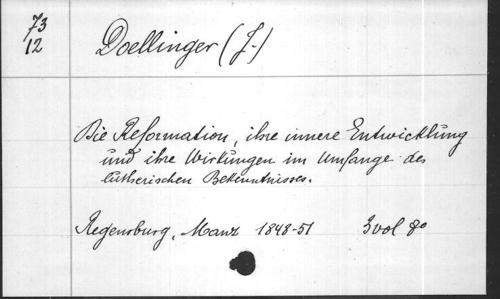 73
12
Doellinger (J.)
Die Reformation, ihre innere Entwicklung
und ihre Wirkungen im Umfange des
lutherischen Bekenntnisses.
Regensburg, Manz 1848-51 3 vol 8°